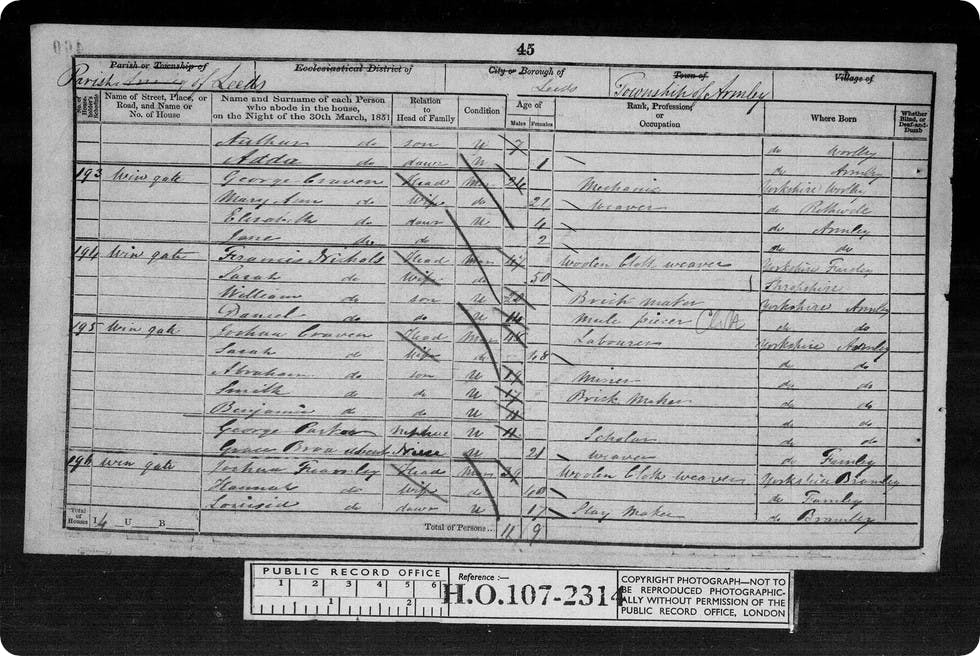 45
Parish or Township of
Ecclesiastical District of
City or Borough of
Town of
Village of
Parish of Leeds
Leeds
Township of Armley
Name of Street, Place, or Road, and Name or No. of House
Name and Surname of each Person who abode in the house, on the Night of the 30th March, 1851
Relation to Head of Family
Condition
Age of
Males Females
Rank, Profession, or Occupation
Where Born
Whether Blind, or Deaf-and-Dumb
do son U 7 do Wortley
Adda do daur U 1 do Armley
193 Win gate George Craven Head Mar 24 Mechanic Yorkshire Wortley
Mary Ann do Wife do 21 Weaver do
Elizabeth do daur U 4 do Armley
Jane do do 2 do do
194 Win gate Francis Nichols Head Mar Woolen Cloth weaver Yorkshire Farsley
Sarah do Wife 50 Shropshire
William son U Brick maker Yorkshire Armley
Daniel do do U 14 Mule piecer Cloth do do
195 Win gate Joshua Craven Head Mar Labourer Yorkshire Armley
Sarah do Wife do 48 do do
Abraham do son U 19 Miner do do
Smith do do U 17 Brick Maker do do
Benjamin do do U 11 do do
George Parker U 11 Scholar do do
Grace Niece U 21 Weaver do Farnley
196 Win gate Joshua Fearnley Head Mar 39 Woolen Cloth weaver Yorkshire Bramley
Hannah do Wife do 40 do
do daur U 17 Slay Maker do Bramley
Total of Houses 14 U B
Total of Persons... 11 9
PUBLIC RECORD OFFICE
1 2 3 4 5 6
1 2
Reference :—
H.O.107-2314
COPYRIGHT PHOTOGRAPH—NOT TO
BE REPRODUCED PHOTOGRAPHIC-
ALLY WITHOUT PERMISSION OF THE
PUBLIC RECORD OFFICE, LONDON